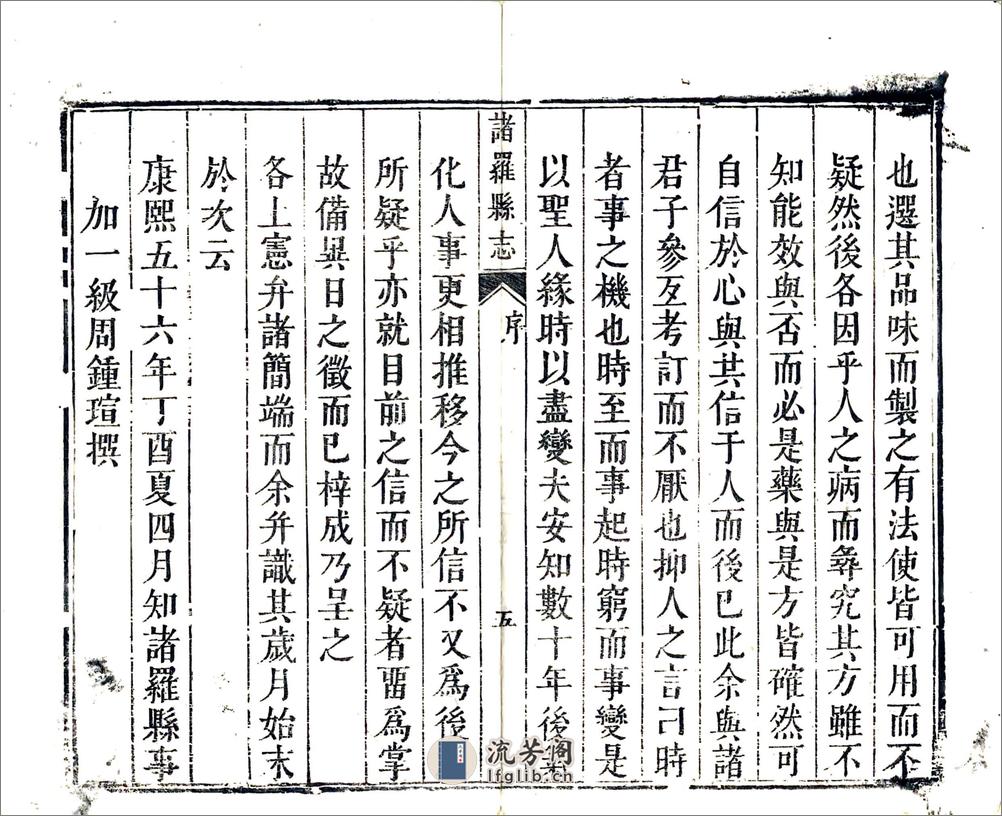 也選其品味而製之有法使皆可用而不
疑然後各因乎人之病而尋究其方雖不
知能效與否而必是藥與是方皆確然可
自信於心與共信于人而後已此余與諸
君子參互考訂而不厭也抑人之言曰時
者事之機也時至而事起時窮而事變是
以聖人緣時以盡變夫安知數十年後
諸羅縣志
序
五
化人事更相推移今之所信不又爲後
所疑乎亦就目前之信而不疑者畱爲掌
故備異日之徵而已梓成乃呈之
各上憲弁諸簡端而余幷識其歲月始末
於次云
康熙五十六年丁酉夏四月知諸羅縣事
加一級周鍾瑄撰
流芳阁
lfglib.cn